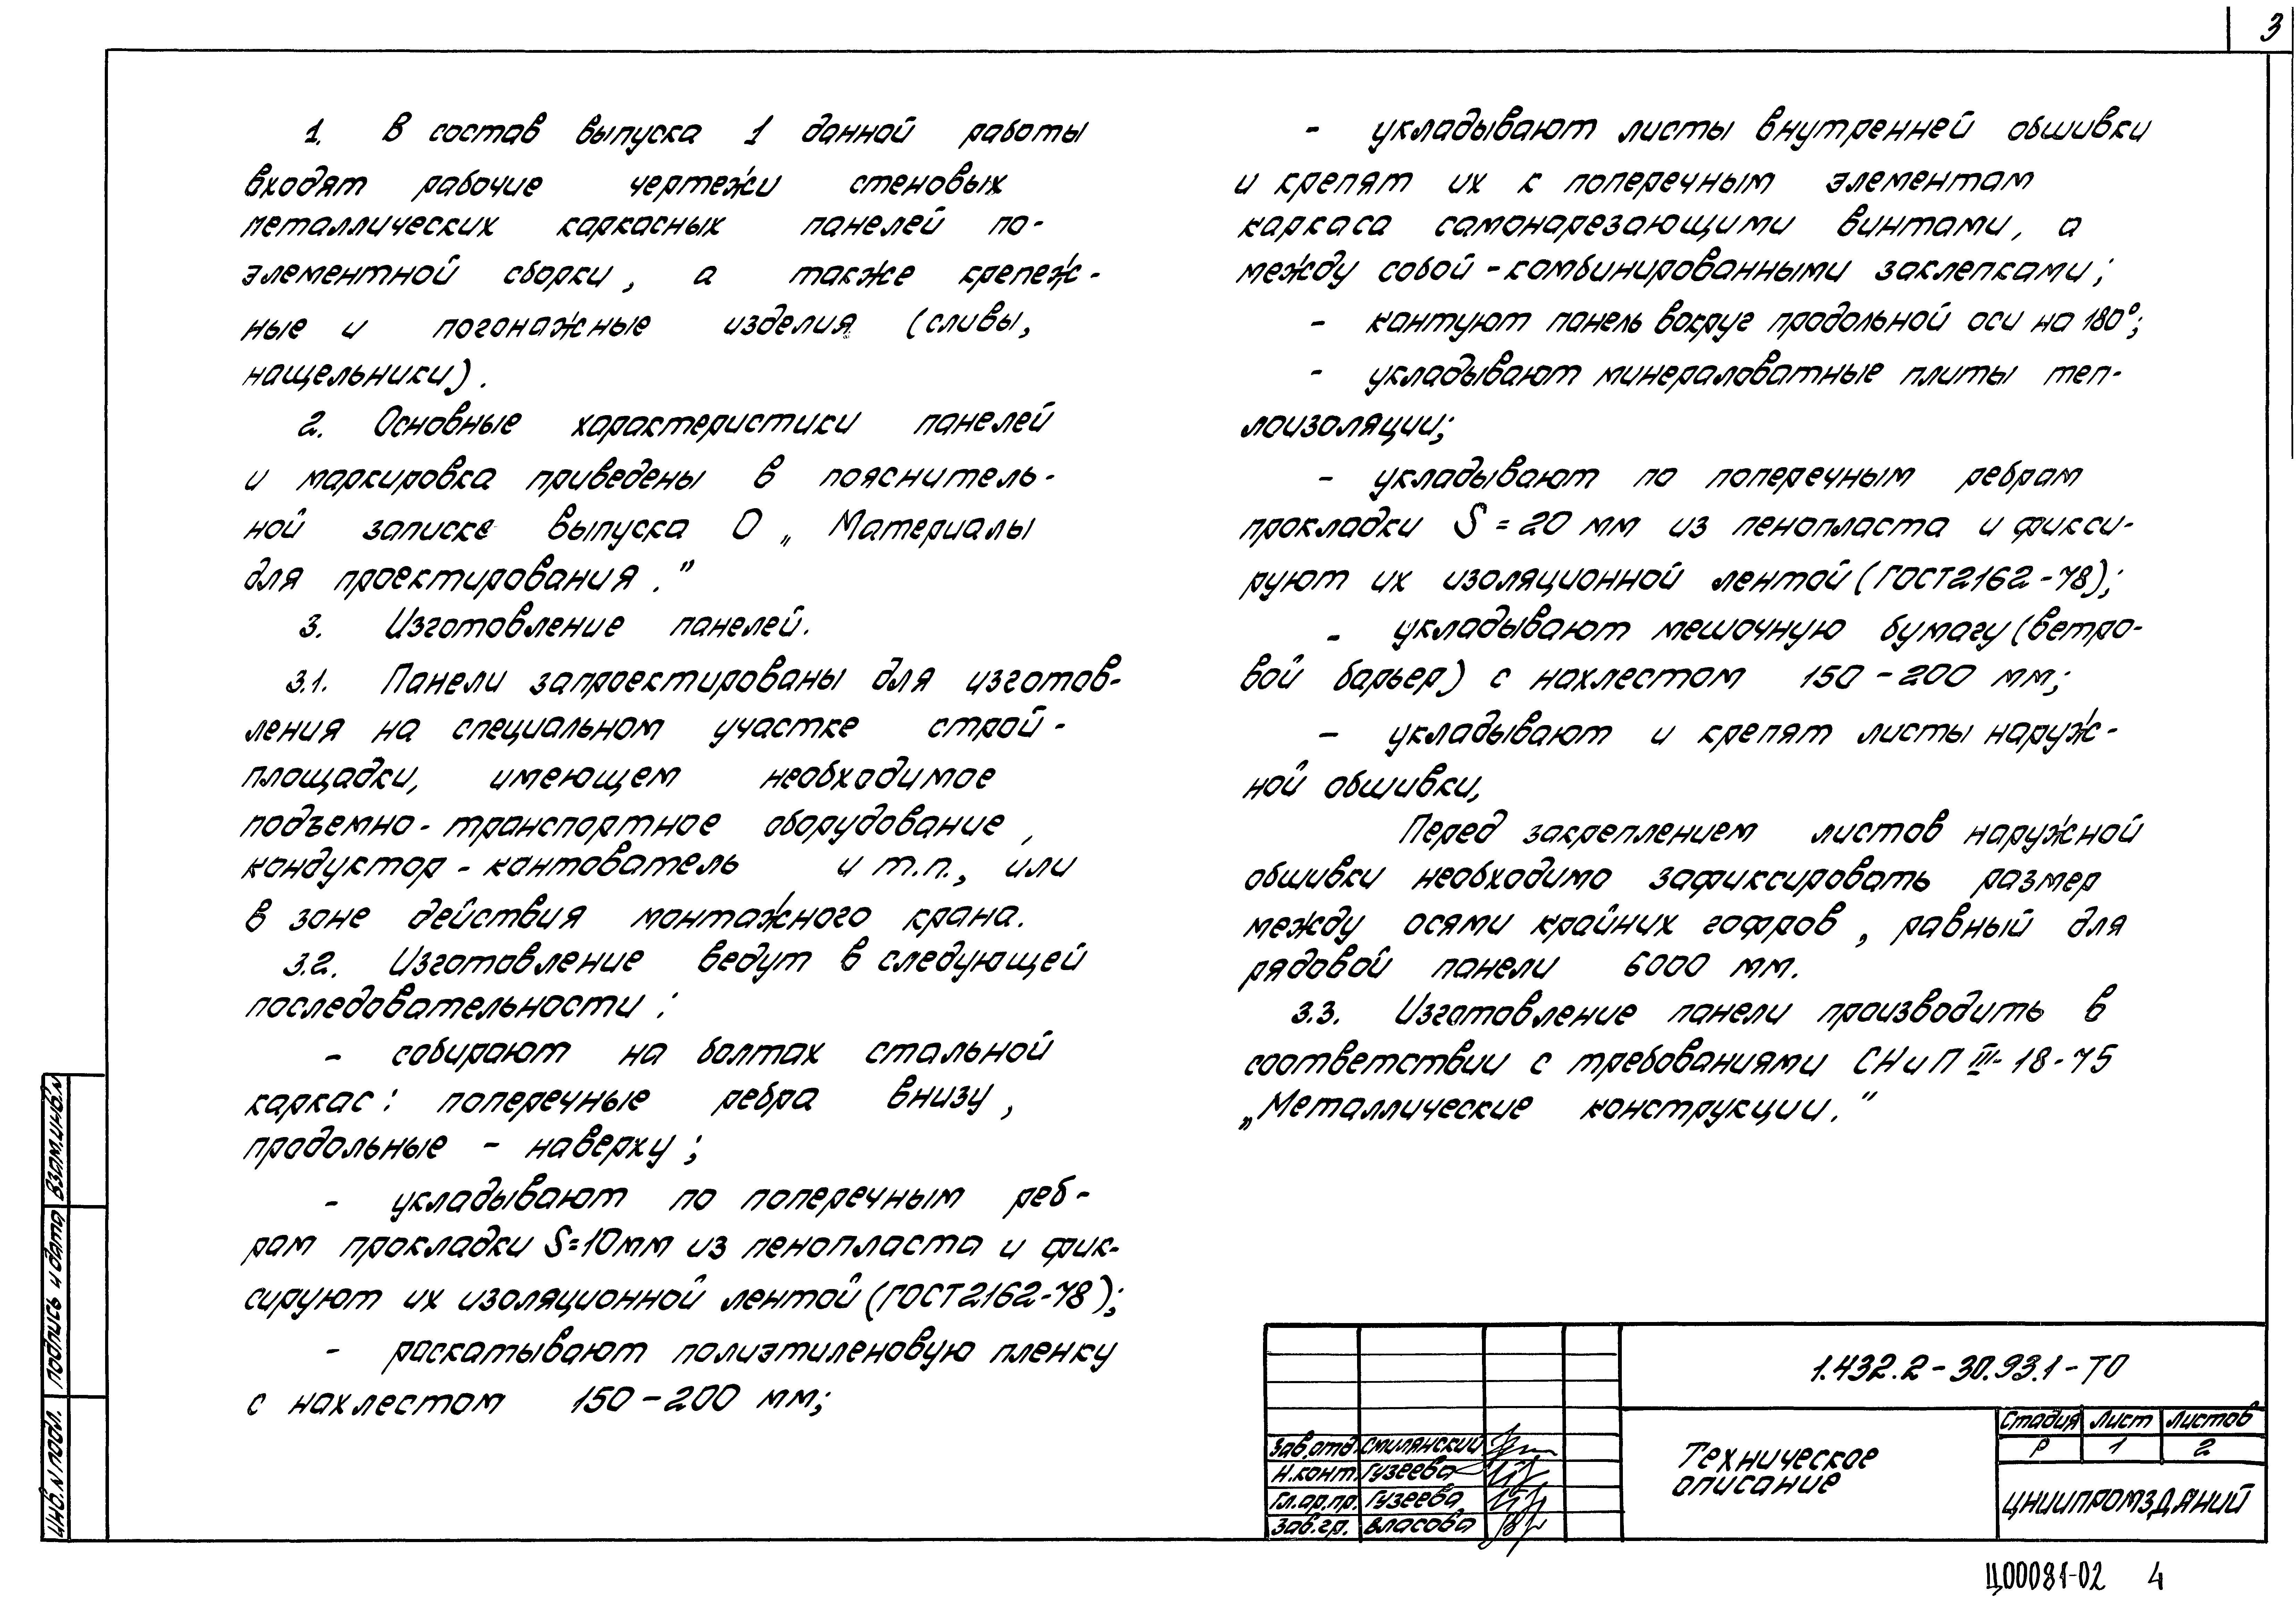 3
1. В состав выпуска 1 данной работы
входят рабочие чертежи стеновых
металлических каркасных панелей по-
элементной сборки, а также крепеж-
ные и погонажные изделия (сливы,
нащельники).
2. Основные характеристики панелей
и маркировка приведены в пояснитель-
ной записке выпуска 0 „Материалы
для проектирования.”
3. Изготовление панелей.
3.1. Панели запроектированы для изготов-
ления на специальном участке строй-
площадки, имеющем необходимое
подъемно-транспортное оборудование,
кондуктор-кантователь и т.п., или
в зоне действия монтажного крана.
3.2. Изготовление ведут в следующей
последовательности:
- собирают на болтах стальной
каркас: поперечные ребра внизу,
продольные - наверху;
- укладывают по поперечным реб-
рам прокладки S=10мм из пенопласта и фик-
сируют их изоляционной лентой (ГОСТ2162-78);
- раскатывают полиэтиленовую пленку
с нахлестом 150-200 мм;
- укладывают листы внутренней обшивки
и крепят их к поперечным элементам
каркаса самонарезающими винтами, а
между собой - комбинированными заклепками;
- кантуют панель вокруг продольной оси на 180°;
- укладывают минераловатные плиты теп-
лоизоляции;
- укладывают по поперечным ребрам
прокладки S = 20 мм из пенопласта и фикси-
руют их изоляционной лентой (ГОСТ2162-78);
- укладывают мешочную бумагу (ветро-
вой барьер) с нахлестом 150-200 мм;
- укладывают и крепят листы наруж-
ной обшивки,
Перед закреплением листов наружной
обшивки необходимо зафиксировать размер
между осями крайних гофров, равный для
рядовой панели 6000 мм.
3.3. Изготовление панели производить в
соответствии с требованиями СНиП III-18-75
„Металлические конструкции.”
Взам.инв.N
Подпись и дата
Инв.N подл.
1.432.2-30.93.1-ТО
Зав.отд. Смилянский
Н.конт. Гузеева
Гл.ар.пр. Гузеева
Зав.гр. Власова
Техническое
описание
Стадия Лист Листов
Р 1 2
ЦНИИПРОМЗДАНИЙ
Ц00081-02 4